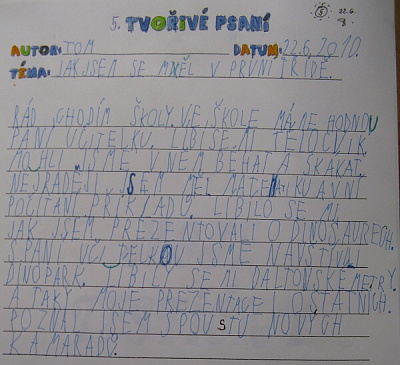 22.6.
5. TVOŘIVÉ PSANÍ
AUTOR: TOM DATUM: 22.6.2010.
TÉMA: JAK JSEM SE MĚL V PRVNÍ TŘÍDĚ.
RÁD CHODÍM ŠKOLY. VE ŠKOLE MÁME HODNOU
PANÍ UČITELKU. LÍBÍ SE MI TĚLOCVIK.
MOHLI JSME V NĚM BĚHAT A SKÁKAT.
NEJRADĚJI JSEM MĚL MATEMATIKU A V NÍ
POČÍTÁNÍ PŘÍKLADŮ. LÍBILO SE MI
JAK JSEM PREZENTOVALI O DINOSAURECH.
S PANÍ UČITELKOU JSME NAVŠTÍVILI
DINOPARK. LÍBILY SE MI DALTONSKÉ METRY.
A TAKY MOJE PREZENTACE I OSTATNÍCH.
POZNAL JSEM SPOUSTU NOVÝCH
KAMARÁDŮ.